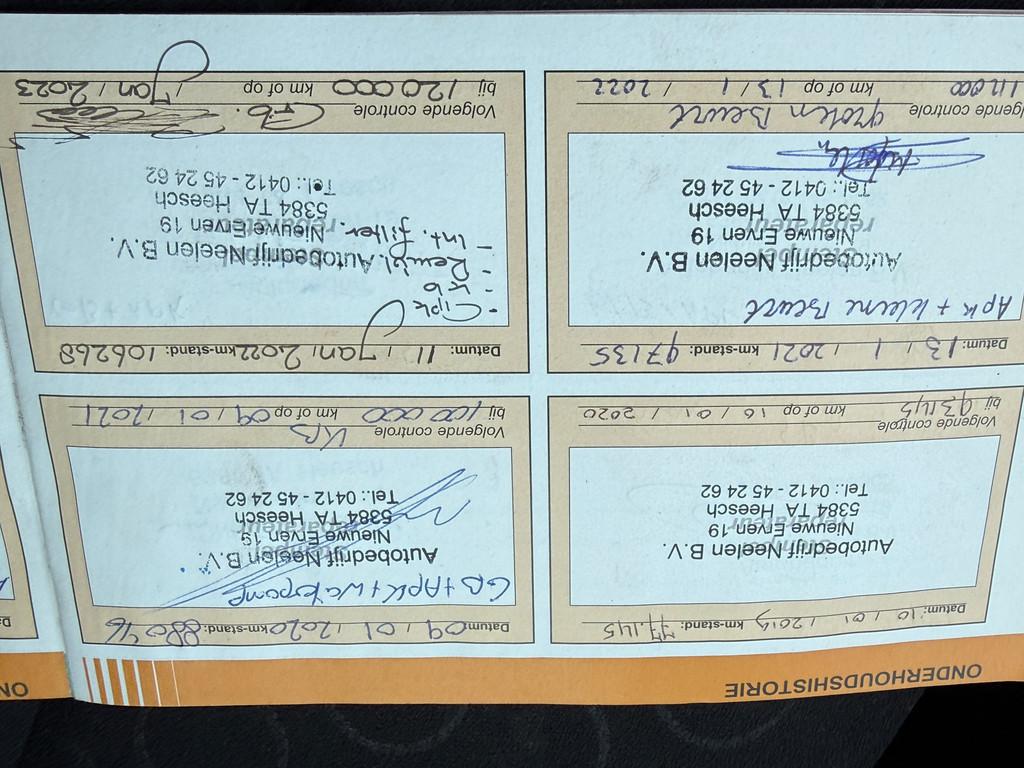 ONDERHOUDSHISTORIE
Datum: 10 / 01 / 2019 km-stand: 77.145
Stempel
reparateur
Autobedrijf Neelen B.V.
Nieuwe Erven 19
5384 TA Heesch
Tel.: 0412 - 45 24 62
Volgende controle
bij 93145 km of op 16 / 01 / 2020
Datum: 09 / 01 / 2020 km-stand: 88046
GB + APK + Waterpomp
Stempel
reparateur
Autobedrijf Neelen B.V.
Nieuwe Erven 19
5384 TA Heesch
Tel.: 0412 - 45 24 62
Volgende controle KB
bij 100000 km of op 09 / 01 / 2021
Datum: 13 / 1 / 2021 km-stand: 97135
Apk + kleine Beurt
Stempel
reparateur
Autobedrijf Neelen B.V.
Nieuwe Erven 19
5384 TA Heesch
Tel.: 0412 - 45 24 62
Volgende controle groten Beurt
km of op 13 / 1 / 2022
Datum: 11 / Jan / 2022 km-stand: 106268
- Apk
- kb
- Remvl.
- Int. filter.
Autobedrijf Neelen B.V.
Nieuwe Erven 19
5384 TA Heesch
Tel.: 0412 - 45 24 62
Volgende controle Gb.
bij 120000 km of op / Jan / 2023
ON
Da